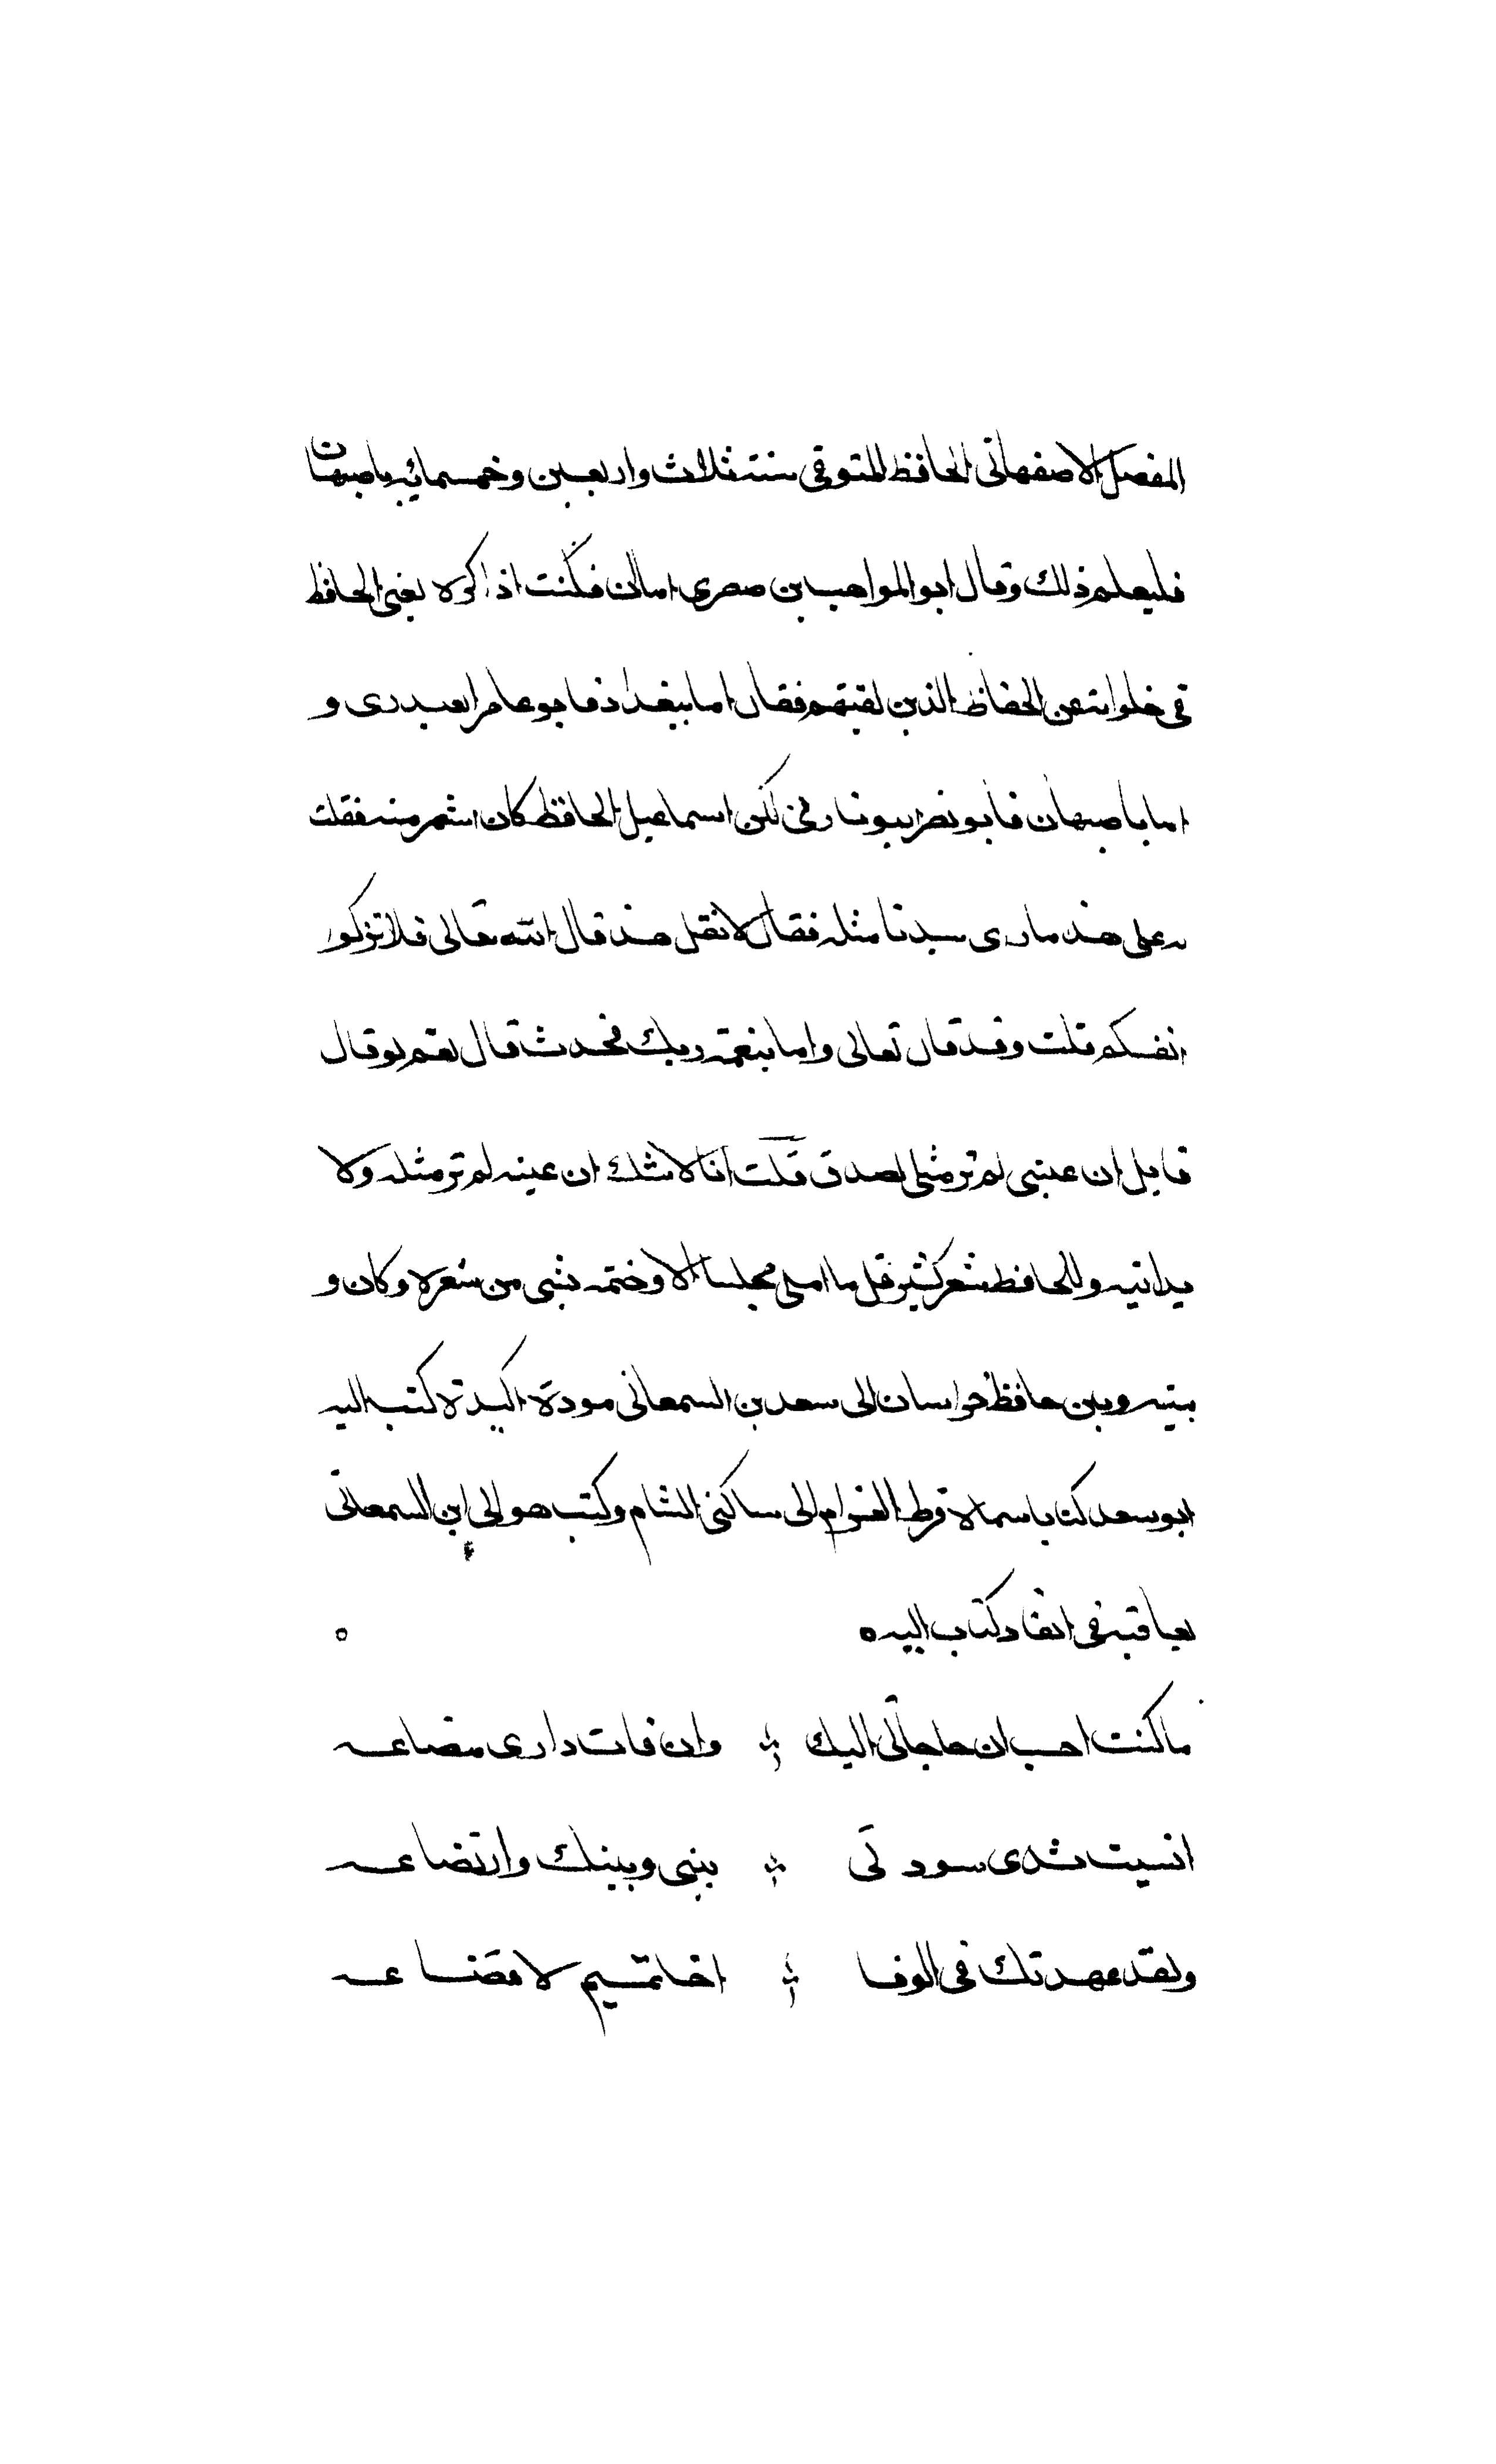 المفضل الاصفهاني الحافظ المتوفي سنة ثلاث واربعين وخمسمائه باصبهان
فليعلم ذلك وقال ابو المواهب بن صصرى اما ان فكنت اذاكره يعني الحافظ
في خلواته عن الحفاظ الذين لقيتهم فقال اما ببغداد فابو عامر العبدرى و
اما باصبهان فابو نصر اليونارفي لكن اسماعيل الحافظ كان اشهر منه فقلت
له على هذا ما رى سيدنا مثله فقال لا تقل هذا قال الله تعالى فلا تزكوا
انفسكم قلت وقد قال تعالى واما بنعمة ربك فحدث قال نعم لو قال
قايل ان عيني لم تر مثلي لصدق قلت انا لا شك ان عينه لم تر مثله ولا
يدانيه وللحافظ شعر كثير قل ما املى مجلسا الا وختمه بشي من شعره وكان و
بينه وبين حافظ خراسان الى سعد بن السمعاني مودة اكيدة كتب اليه
ابو سعد كتابا سماه فرط الغرام الى ساكني الشام وكتب هو الى ابن السمعاني
يعاتبه في انفاد كتاب اليه
ما كنت احسب ان حاجاتي اليك وان فات دارى مضاعه
انسيت ثدى مودتي بيني وبينك وارتضاعه
ولقد عهدتك في الوفا اخا تميم لا قضاعه